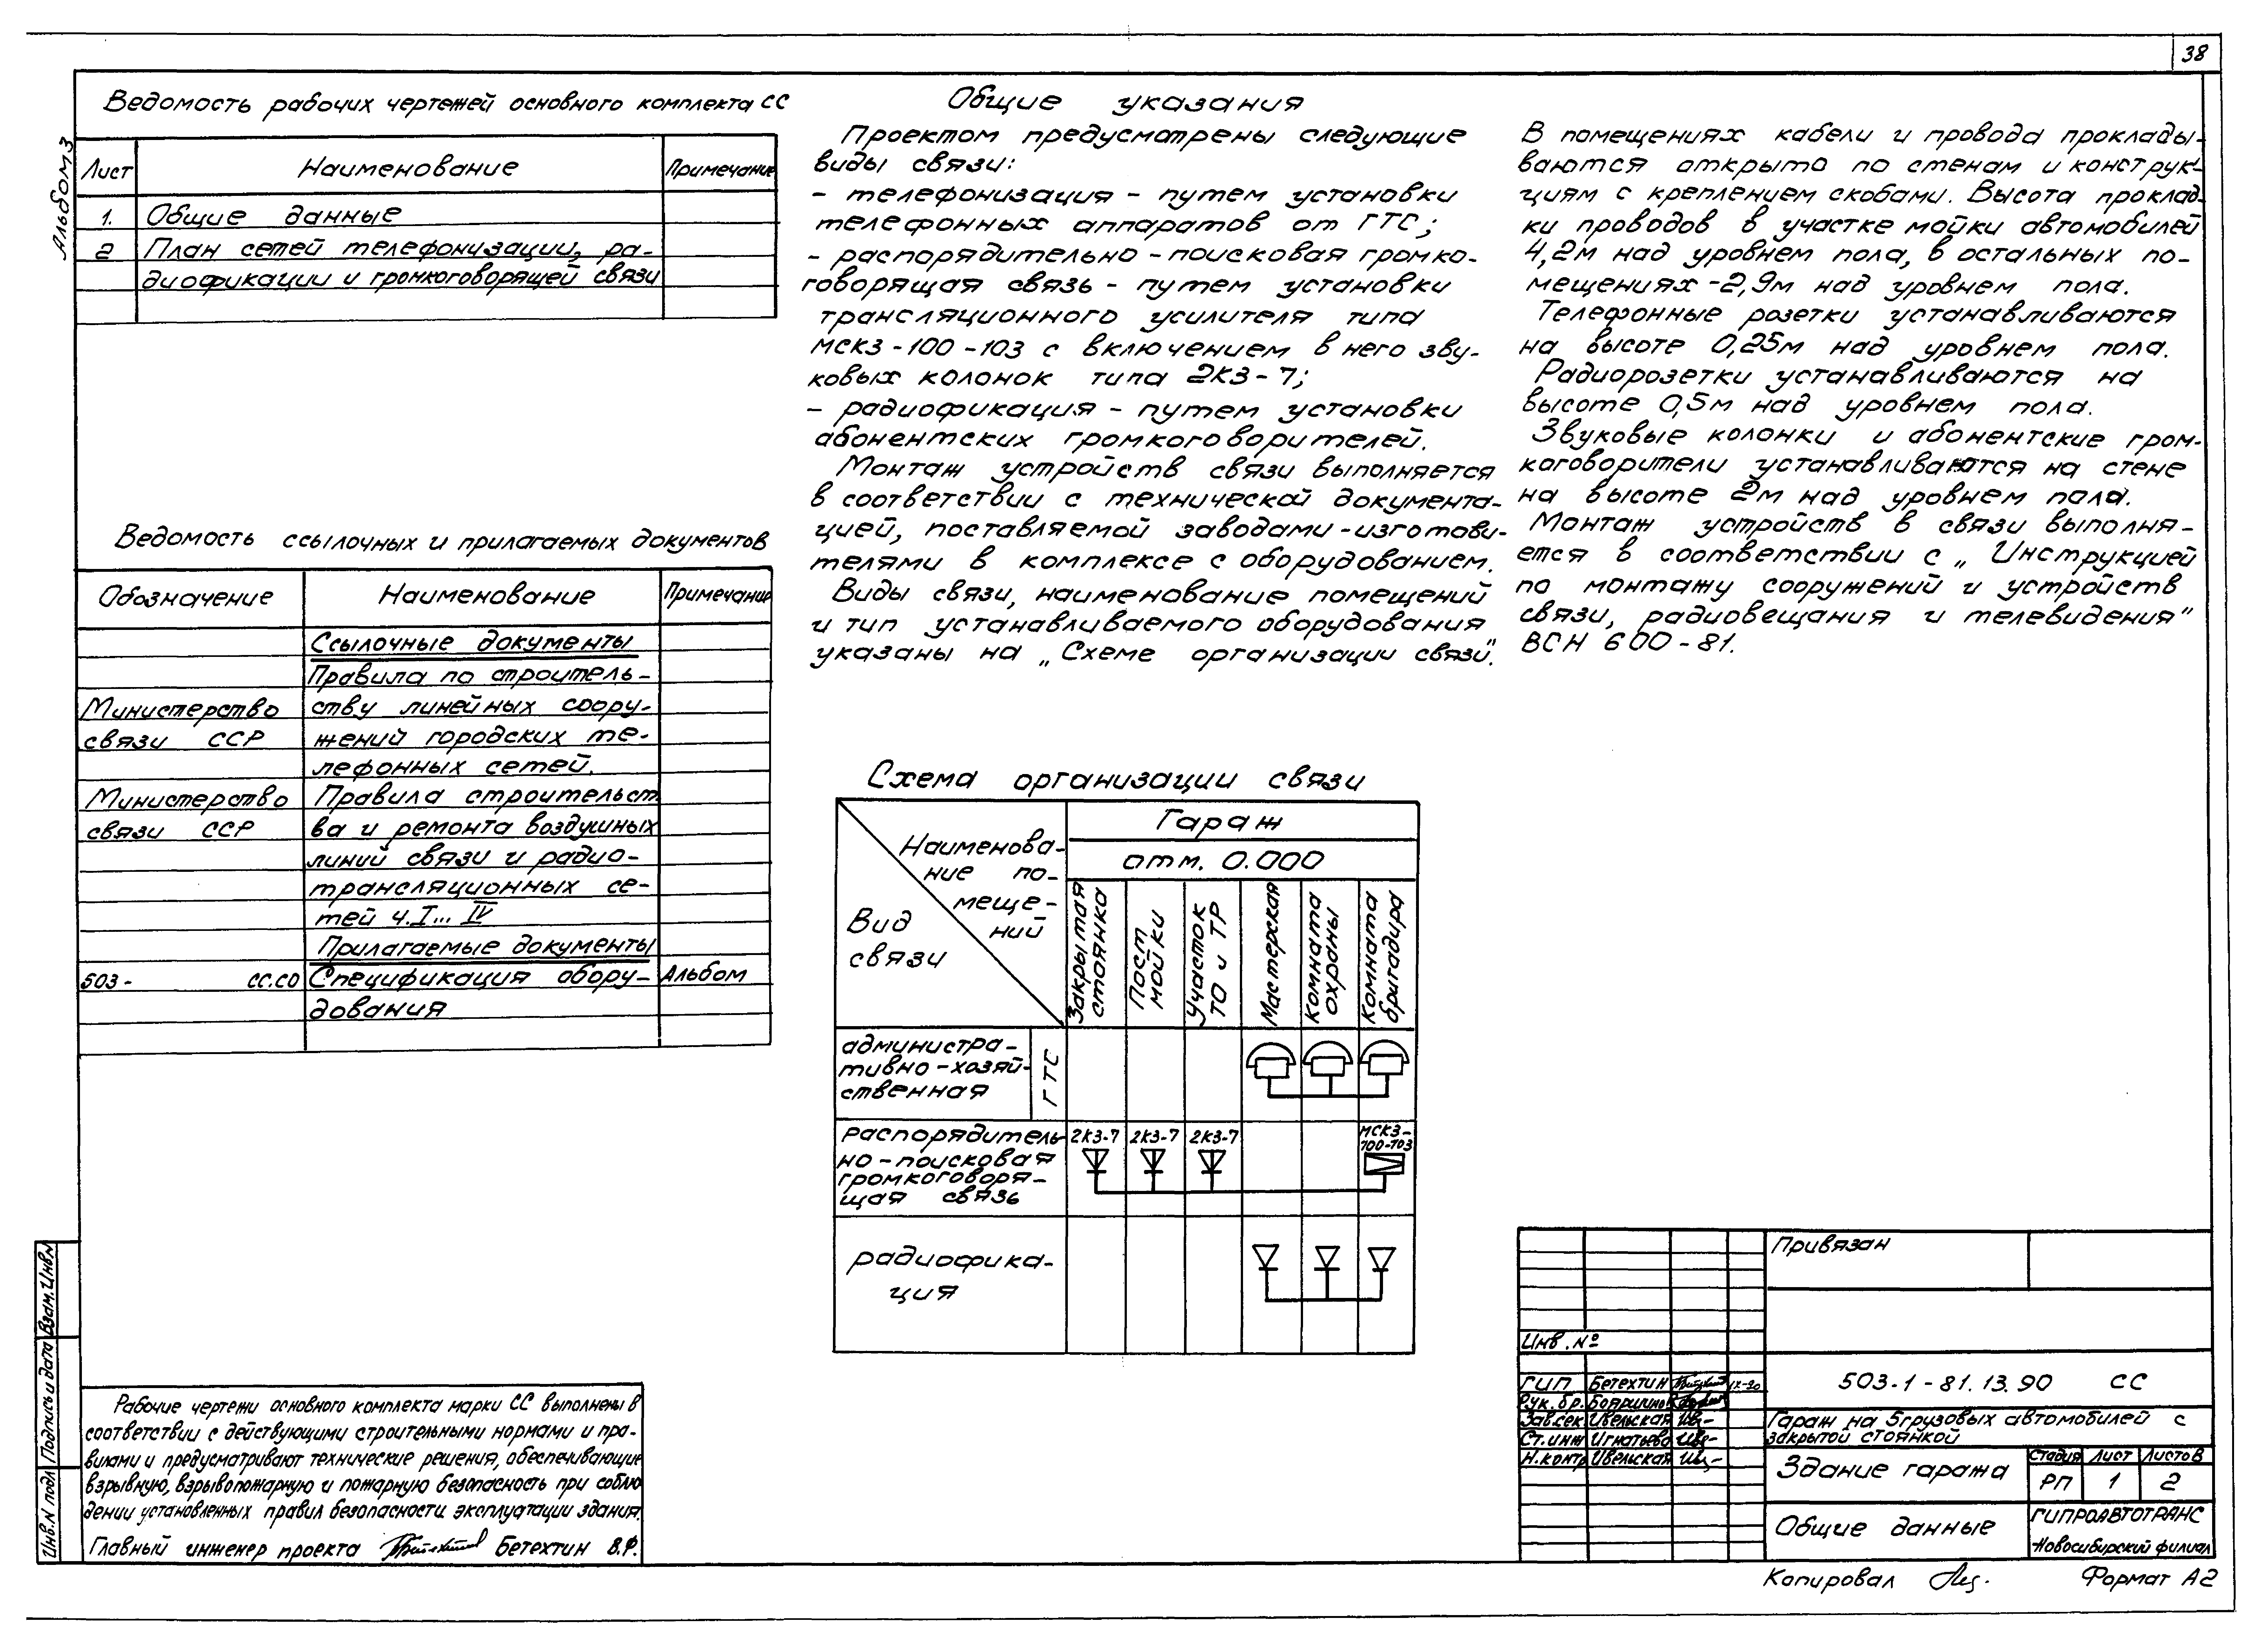 38
Альбом 3
Ведомость рабочих чертежей основного комплекта СС
Лист Наименование Примечание
1. Общие данные
2 План сетей телефонизации, ра-
диофикации и громкоговорящей связи
Ведомость ссылочных и прилагаемых документов
Обозначение Наименование Примечание
Ссылочные документы
Правила по строитель-
Министерство ству линейных соору-
связи ССР жений городских те-
лефонных сетей.
Министерство Правила строительст
связи ССР ва и ремонта воздушных
линий связи и радио-
трансляционных се-
тей ч. I... IV
Прилагаемые документы
503- СС.СО Спецификация обору- Альбом
дования
Общие указания
Проектом предусмотрены следующие
виды связи:
- телефонизация - путем установки
телефонных аппаратов от ГТС;
- распорядительно - поисковая громко-
говорящая связь - путем установки
трансляционного усилителя типа
МСКЗ-100-103 с включением в него зву-
ковых колонок типа 2КЗ-7;
- радиофикация - путем установки
абонентских громкоговорителей.
Монтаж устройств связи выполняется
в соответствии с технической документа-
цией, поставляемой заводами-изготови-
телями в комплексе с оборудованием.
Виды связи, наименование помещений
и тип устанавливаемого оборудования
указаны на „Схеме организации связи".
В помещениях кабели и провода проклады-
ваются открыто по стенам и конструк-
циям с креплением скобами. Высота проклад-
ки проводов в участке мойки автомобилей
4,2м над уровнем пола, в остальных по-
мещениях -2,9м над уровнем пола.
Телефонные розетки устанавливаются
на высоте 0,25м над уровнем пола.
Радиорозетки устанавливаются на
высоте 0,5м над уровнем пола.
Звуковые колонки и абонентские гром-
коговорители устанавливаются на стене
на высоте 2м над уровнем пола.
Монтаж устройств в связи выполня-
ется в соответствии с „Инструкцией
по монтажу сооружений и устройств
связи, радиовещания и телевидения"
ВСН 600-81.
Схема организации связи
Наименова-
ние по-
меще-
ний
Вид
связи
Гараж
отм. 0.000
Закрытая
стоянка
Пост
мойки
Участок
ТО и ТР
Мастерская
Комната
охраны
Комната
бригадира
администра-
тивно-хозяй-
ственная
ГТС
распорядитель
но-поисковая
громкоговоря-
щая связь
2КЗ-7 2КЗ-7 2КЗ-7 МСКЗ-
100-103
радиофика-
ция
Рабочие чертежи основного комплекта марки СС выполнены в
соответствии с действующими строительными нормами и пра-
вилами и предусматривают технические решения, обеспечивающие
взрывную, взрывопожарную и пожарную безопасность при соблю
дении установленных правил безопасности эксплуатации здания.
Главный инженер проекта Бетехтин В.Ф.
Взам.Инв№
Подпись и дата
Инв.N подл
Привязан
Инв.№
ГИП Бетехтин IX-90
Рук.бр. Бояршинов
Зав.сек Ивельская
Ст.инж Игнатьева
Н.контр Ивельская
503-1-81.13.90 СС
Гараж на 5грузовых автомобилей с
закрытой стоянкой
Здание гаража
Стадия Лист Листов
РП 1 2
Общие данные
ГИПРОАВТОТРАНС
Новосибирский филиал
Копировал
Формат А2